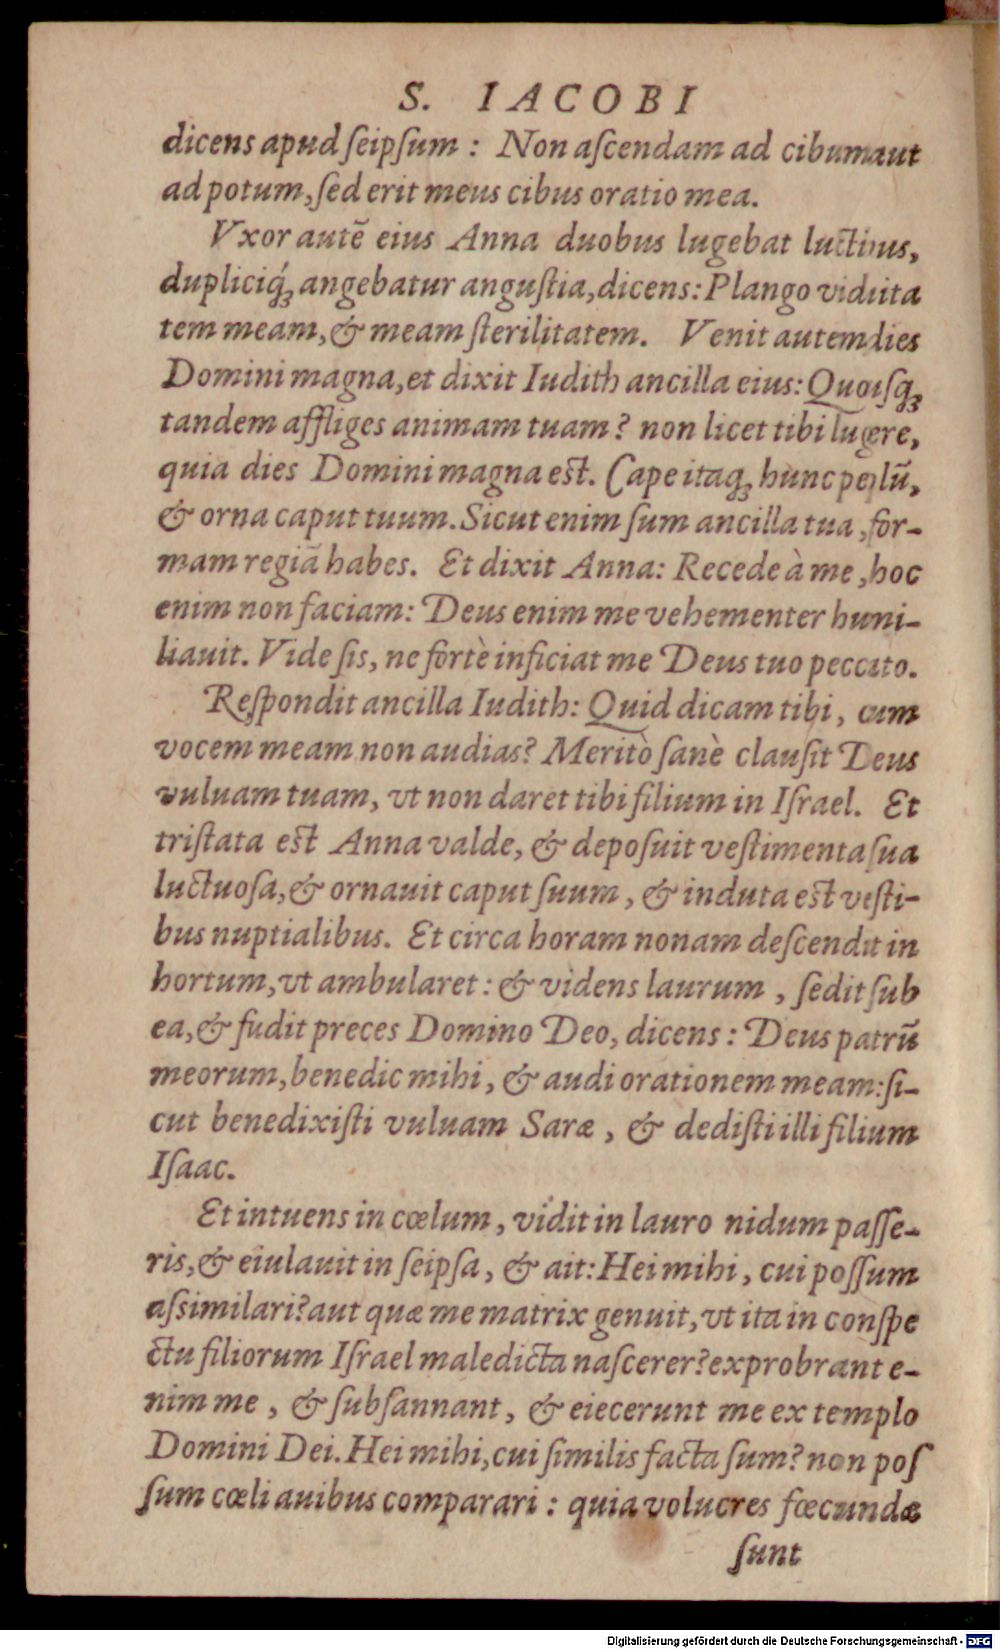 S. IACOBI
dicens apud ſeipſum : Non aſcendam ad cibum aut
ad potum, ſed erit meus cibus oratio mea.
Vxor autē eius Anna duobus lugebat luctibus,
dupliciq́; angebatur anguſtia, dicens: Plango viduita
tem meam, & meam ſterilitatem. Venit autem dies
Domini magna, et dixit Iudith ancilla eius: Quouſq;
tandem affliges animam tuam? non licet tibi lugere,
quia dies Domini magna est. Cape itaq; hunc peplū,
& orna caput tuum. Sicut enim ſum ancilla tua, for-
mam regiā habes. Et dixit Anna: Recede à me, hoc
enim non faciam: Deus enim me vehementer humi-
liauit. Vide ſis, ne fortè inficiat me Deus tuo peccato.
Reſpondit ancilla Iudith: Quid dicam tibi, cum
vocem meam non audias? Meritò ſanè clauſit Deus
vuluam tuam, vt non daret tibi filium in Iſrael. Et
triſtata est Anna valde, & depoſuit veſtimenta ſua
luctuoſa, & ornauit caput ſuum, & induta est veſti-
bus nuptialibus. Et circa horam nonam deſcendit in
hortum, vt ambularet : & videns laurum, ſedit ſub
ea, & fudit preces Domino Deo, dicens : Deus patrū
meorum, benedic mihi, & audi orationem meam: ſi-
cut benedixiſti vuluam Saræ, & dediſti illi filium
Iſaac.
Et intuens in cœlum, vidit in lauro nidum paſſe-
ris, & eiulauit in ſeipſa, & ait: Hei mihi, cui poſſum
aſsimilari? aut quæ me matrix genuit, vt ita in conſpe
ctu filiorum Iſrael maledicta naſcerer? exprobrant e-
nim me, & ſubſannant, & eiecerunt me ex templo
Domini Dei. Hei mihi, cui ſimilis facta ſum? non poſ
ſum cœli auibus comparari : quia volucres fœcundæ
ſunt
Digitalisierung gefördert durch die Deutsche Forschungsgemeinschaft - DFG